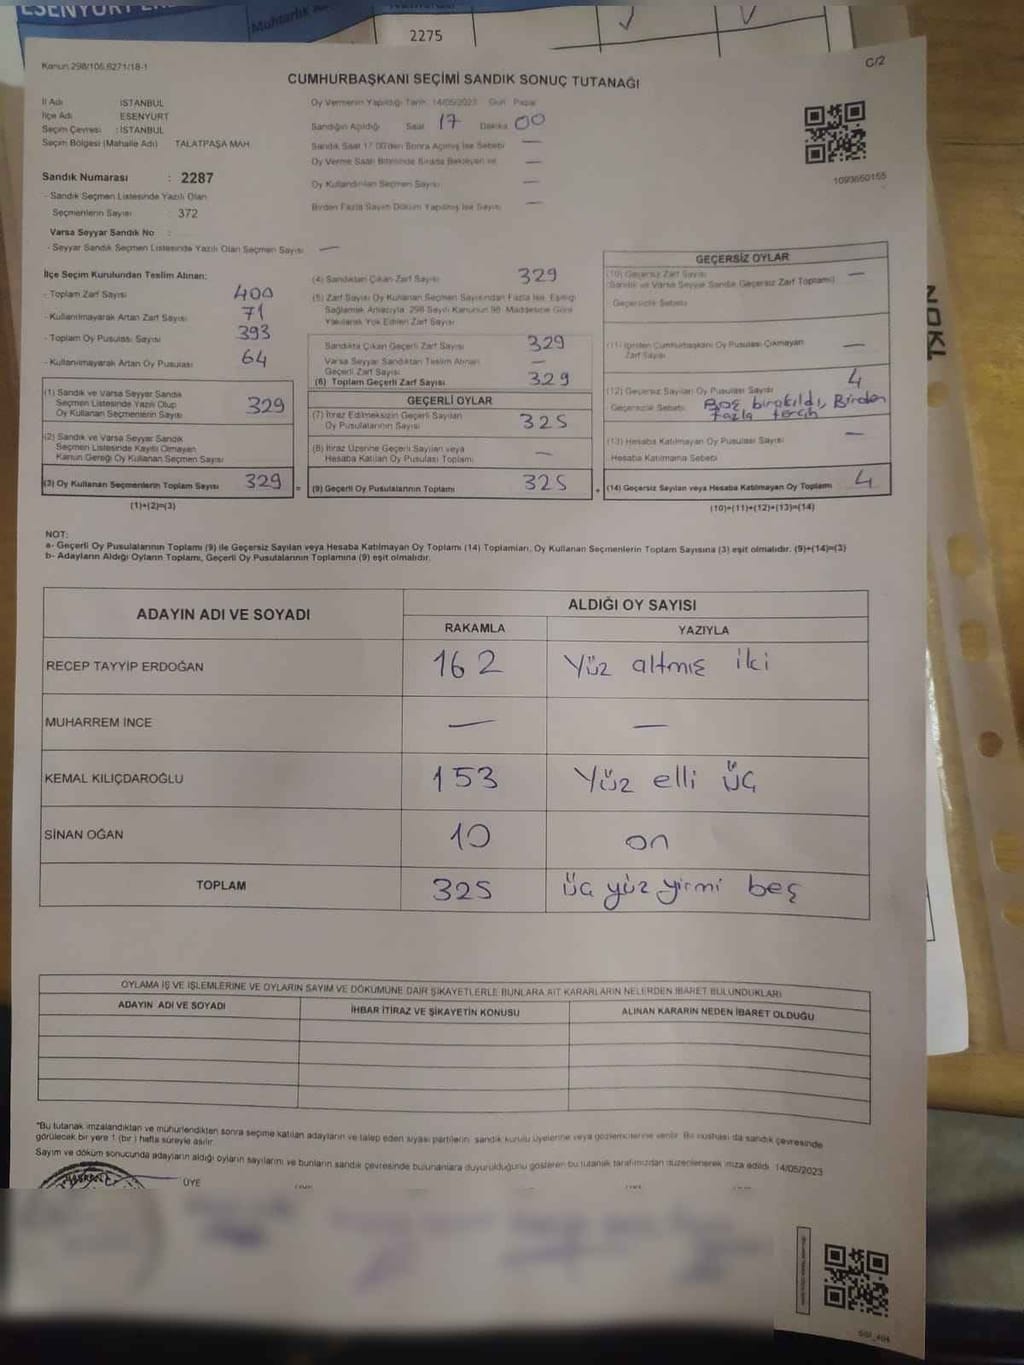 ESENYURT
Muhtarlık
2275
Kanun 298/105,6271/18-1
C/2
CUMHURBAŞKANI SEÇİMİ SANDIK SONUÇ TUTANAĞI
İl Adı : İSTANBUL
İlçe Adı ESENYURT
Seçim Çevresi : İSTANBUL
Seçim Bölgesi (Mahalle Adı) TALATPAŞA MAH.
Oy Vermenin Yapıldığı Tarih: 14/05/2023 Gün: Pazar
Sandığın Açıldığı Saat 17 Dakika 00
Sandık Saat 17:00'den Sonra Açılmış İse Sebebi —
Oy Verme Saati Bitiminde Sırada Bekleyen —
Oy Kullandırılan Seçmen Sayısı —
Birden Fazla Sayım Döküm Yapılmış İse Sayısı —
1093650155
Sandık Numarası : 2287
- Sandık Seçmen Listesinde Yazılı Olan
Seçmenlerin Sayısı : 372
Varsa Seyyar Sandık No :
- Seyyar Sandık Seçmen Listesinde Yazılı Olan Seçmen Sayısı —
İlçe Seçim Kurulundan Teslim Alınan:
- Toplam Zarf Sayısı 400
- Kullanılmayarak Artan Zarf Sayısı 71
- Toplam Oy Pusulası Sayısı 393
- Kullanılmayarak Artan Oy Pusulası 64
(1) Sandık ve Varsa Seyyar Sandık
Seçmen Listesinde Yazılı Olup
Oy Kullanan Seçmenlerin Sayısı 329
(2) Sandık ve Varsa Seyyar Sandık
Seçmen Listesinde Kayıtlı Olmayan
Kanun Gereği Oy Kullanan Seçmen Sayısı
(3) Oy Kullanan Seçmenlerin Toplam Sayısı 329 =
(1)+(2)=(3)
(4) Sandıktan Çıkan Zarf Sayısı 329
(5) Zarf Sayısı Oy Kullanan Seçmen Sayısından Fazla İse, Eşitliği
Sağlamak Amacıyla 298 Sayılı Kanunun 98. Maddesine Göre
Yakılarak Yok Edilen Zarf Sayısı
Sandıkta Çıkan Geçerli Zarf Sayısı 329
Varsa Seyyar Sandıktan Teslim Alınan
Geçerli Zarf Sayısı —
(6) Toplam Geçerli Zarf Sayısı 329
GEÇERLİ OYLAR
(7) İtiraz Edilmeksizin Geçerli Sayılan
Oy Pusulalarının Sayısı 325
(8) İtiraz Üzerine Geçerli Sayılan veya
Hesaba Katılan Oy Pusulası Toplamı —
(9) Geçerli Oy Pusulalarının Toplamı 325 +
GEÇERSİZ OYLAR
(10) Geçersiz Zarf Sayısı —
(Sandık ve Varsa Seyyar Sandık Geçersiz Zarf Toplamı)
Geçersizlik Sebebi
(11) İçinden Cumhurbaşkanı Oy Pusulası Çıkmayan
Zarf Sayısı —
(12) Geçersiz Sayılan Oy Pusulası Sayısı 4
Geçersizlik Sebebi Boş bırakıldı, Birden
fazla tercih
(13) Hesaba Katılmayan Oy Pusulası Sayısı —
Hesaba Katılmama Sebebi
(14) Geçersiz Sayılan veya Hesaba Katılmayan Oy Toplamı 4
(10)+(11)+(12)+(13)=(14)
NOT:
a- Geçerli Oy Pusulalarının Toplamı (9) ile Geçersiz Sayılan veya Hesaba Katılmayan Oy Toplamı (14) Toplamları, Oy Kullanan Seçmenlerin Toplam Sayısına (3) eşit olmalıdır. (9)+(14)=(3)
b- Adayların Aldığı Oyların Toplamı, Geçerli Oy Pusulalarının Toplamına (9) eşit olmalıdır.
ADAYIN ADI VE SOYADI
ALDIĞI OY SAYISI
RAKAMLA YAZIYLA
RECEP TAYYİP ERDOĞAN 162 Yüz altmış iki
MUHARREM İNCE — —
KEMAL KILIÇDAROĞLU 153 Yüz elli üç
SİNAN OĞAN 10 on
TOPLAM 325 üç yüz yirmi beş
OYLAMA İŞ VE İŞLEMLERİNE VE OYLARIN SAYIM VE DÖKÜMÜNE DAİR ŞİKAYETLERLE BUNLARA AİT KARARLARIN NELERDEN İBARET BULUNDUKLARI
ADAYIN ADI VE SOYADI İHBAR İTİRAZ VE ŞİKAYETİN KONUSU ALINAN KARARIN NEDEN İBARET OLDUĞU
*Bu tutanak imzalandıktan ve mühürlendikten sonra seçime katılan adayların ve talep eden siyasi partilerin sandık kurulu üyelerine veya gözlemcilerine verilir. Bir nüshası da sandık çevresinde
görülecek bir yere 1 (bir) hafta süreyle asılır.
Sayım ve döküm sonucunda adayların aldığı oyların sayılarını ve bunların sandık çevresinde bulunanlara duyurulduğunu gösteren bu tutanak tarafımızdan düzenlenerek imza edildi. 14/05/2023
BAŞKAN
ÜYE